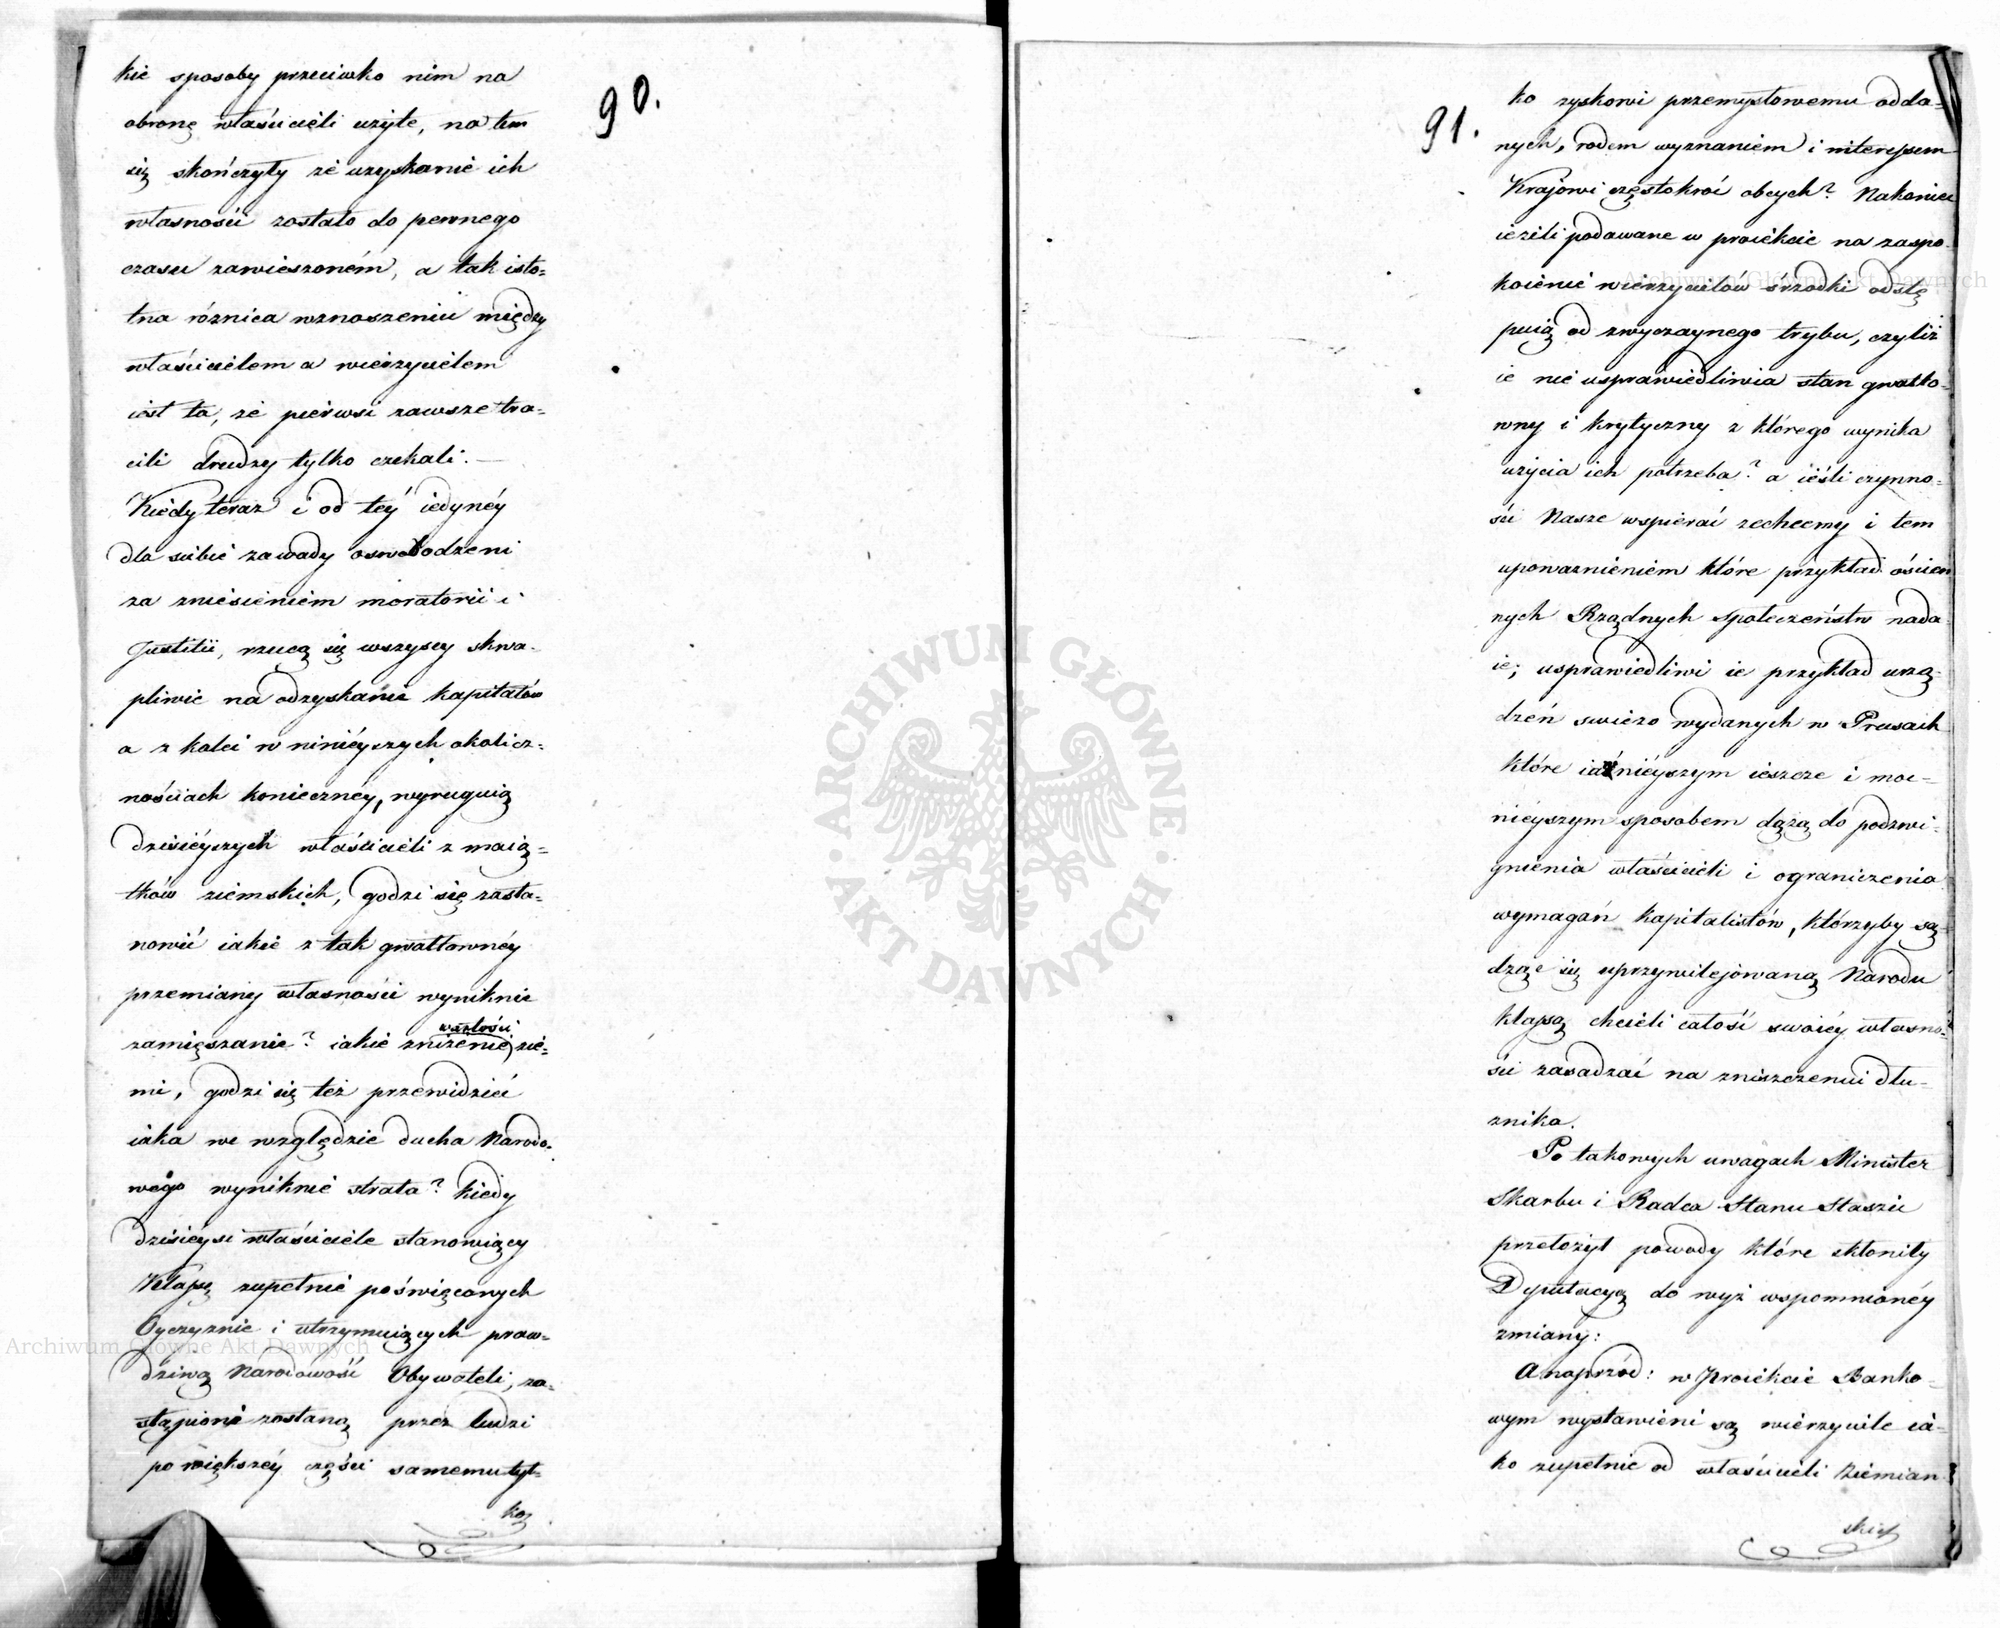 90.
kie sposoby przeciwko nim na
obronę właścicieli użyte, na tem
się skończyły że uzyskanie ich
własności zostało do pewnego
czasu zawieszoném, a tak isto=
tna różnica wznoszeniu między
właścicielem a wierzycielem
iest ta, że pierwsi zawsze tra=
cili drudzy tylko czekali. —
Kiedy teraz i od téy iedynéy
dla siebie zawady oswobodzeni
za zniesieniem moratorii i
Justitii, rzucą się wszyscy skwa-
pliwie na odzyskanie kapitałów
a z kolei w niniéyszych okolicz=
nościach konieczney, wyruguią
dzisiéyszych właścicieli z maią=
tków ziemskich, godzi się zasta=
nowić iakie z tak gwałtownéy
przemiany własności wyniknie
zamięszanie? iakie zniżenie wartości zie=
mi, godzi się też przewidzieć
iaka we względzie ducha Narodo=
wego wyniknie strata? kiedy
dzisieysi właściciele stanowiący
Klassę zupełnie poświęconych
Oyczyznie i utrzymuiących praw=
dziwą Narodowość Obywateli, za=
stąpione zostaną przez ludzi
po większéy części samemu tyl=
ko
91.
ko zyskowi przemysłowemu odda=
nych, rodem wyznaniem i interessem
Krajowi częstokroć obcych? Nakoniec
ieżeli podawane w proiekcie na zaspo-
koienie wierzycielów srzodki odstę
puią od zwyczaynego trybu, czyliż
ie nie usprawiedliwia stan gwałto=
wny i krytyczny z którego wynika
użycia ich potrzeba? a ieśli czynno=
ści Nasze wspierać zechcemy i tem
upoważnieniem które przykład ościen
nych Rządnych społeczeństw nada-
ie; usprawiedliwi ie przykład urzą-
dzeń swieżo wydanych w Prusach
które iaśniéyszym ieszcze i moc=
niéyszym sposobem dążą do podzwi-
gnienia właścicieli i ograniczenia
wymagań kapitalistów, którzyby są=
dząc się uprzywilejowaną Narodu
klassą chcieli całość swoiéy własno=
ści zasadzać na zniszczeniu dłu=
znika.
Po takowych uwagach Minister
Skarbu i Radca Stanu Staszic
przełożył powody które skłoniły
Deputacyą do wyż wspomnionéy
zmiany:
A naprzód: w Proiekcie Banko=
wym wystawieni są wierzyciele ia=
ko zupełnie od właścicieli Ziemian
skich
ARCHIWUM GŁÓWNE AKT DAWNYCH
Archiwum Główne Akt Dawnych
Archiwum Główne Akt Dawnych